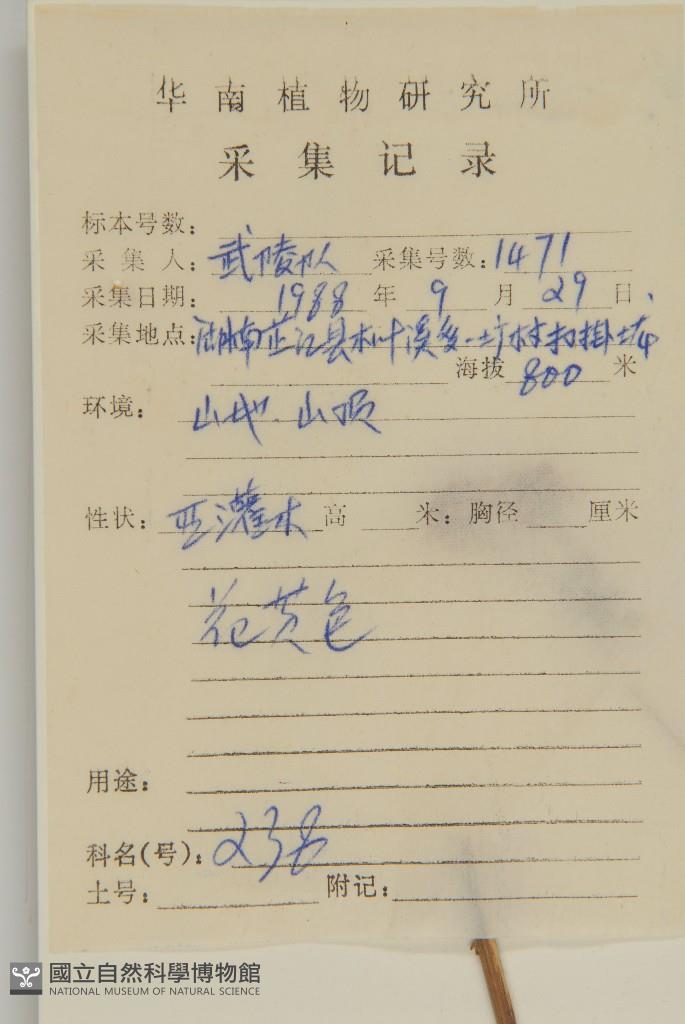 华南植物研究所
采集记录
标本号数:
采集人: 武陵队 采集号数: 1471
采集日期: 1988 年 9 月 29 日、
采集地点: 湖南芷江县木叶溪
海拔 800 米
环境: 山地. 山顶
性状: 亚灌木 高 米: 胸径 厘米
花黄色
用途:
科名(号): 238
土号: 附记:
國立自然科學博物館
NATIONAL MUSEUM OF NATURAL SCIENCE